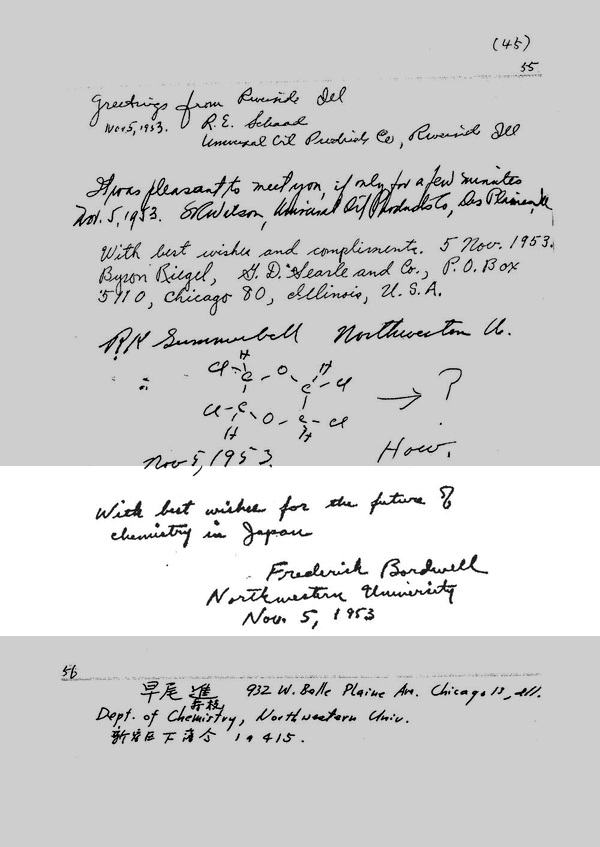 (45)
55
Greetings from Riverside Ill
Nov 5, 1953. R.E. Schaad
Universal Oil Products Co, Riverside Ill
It was pleasant to meet you, if only for a few minutes
Nov. 5, 1953. Wilson, Universal Oil Products Co, Des Plaines, Ill
With best wishes and compliments. 5 Nov. 1953.
Byron Riegel, G. D. Searle and Co., P. O. Box
5110, Chicago 80, Illinois, U. S. A.
R.K Summerbell Northwestern U.
H H
Cl - C - O - C - Cl
→ ?
Cl - C - O - C - Cl
H H
Nov 5, 1953. How.
With best wishes for the future of
chemistry in Japan
Frederick Bordwell
Northwestern University
Nov. 5, 1953
56
早尾 進 932 W. Belle Plaine Ave. Chicago 13, Ill.
Dept. of Chemistry, Northwestern Univ.
新宿区下落合 1 415.